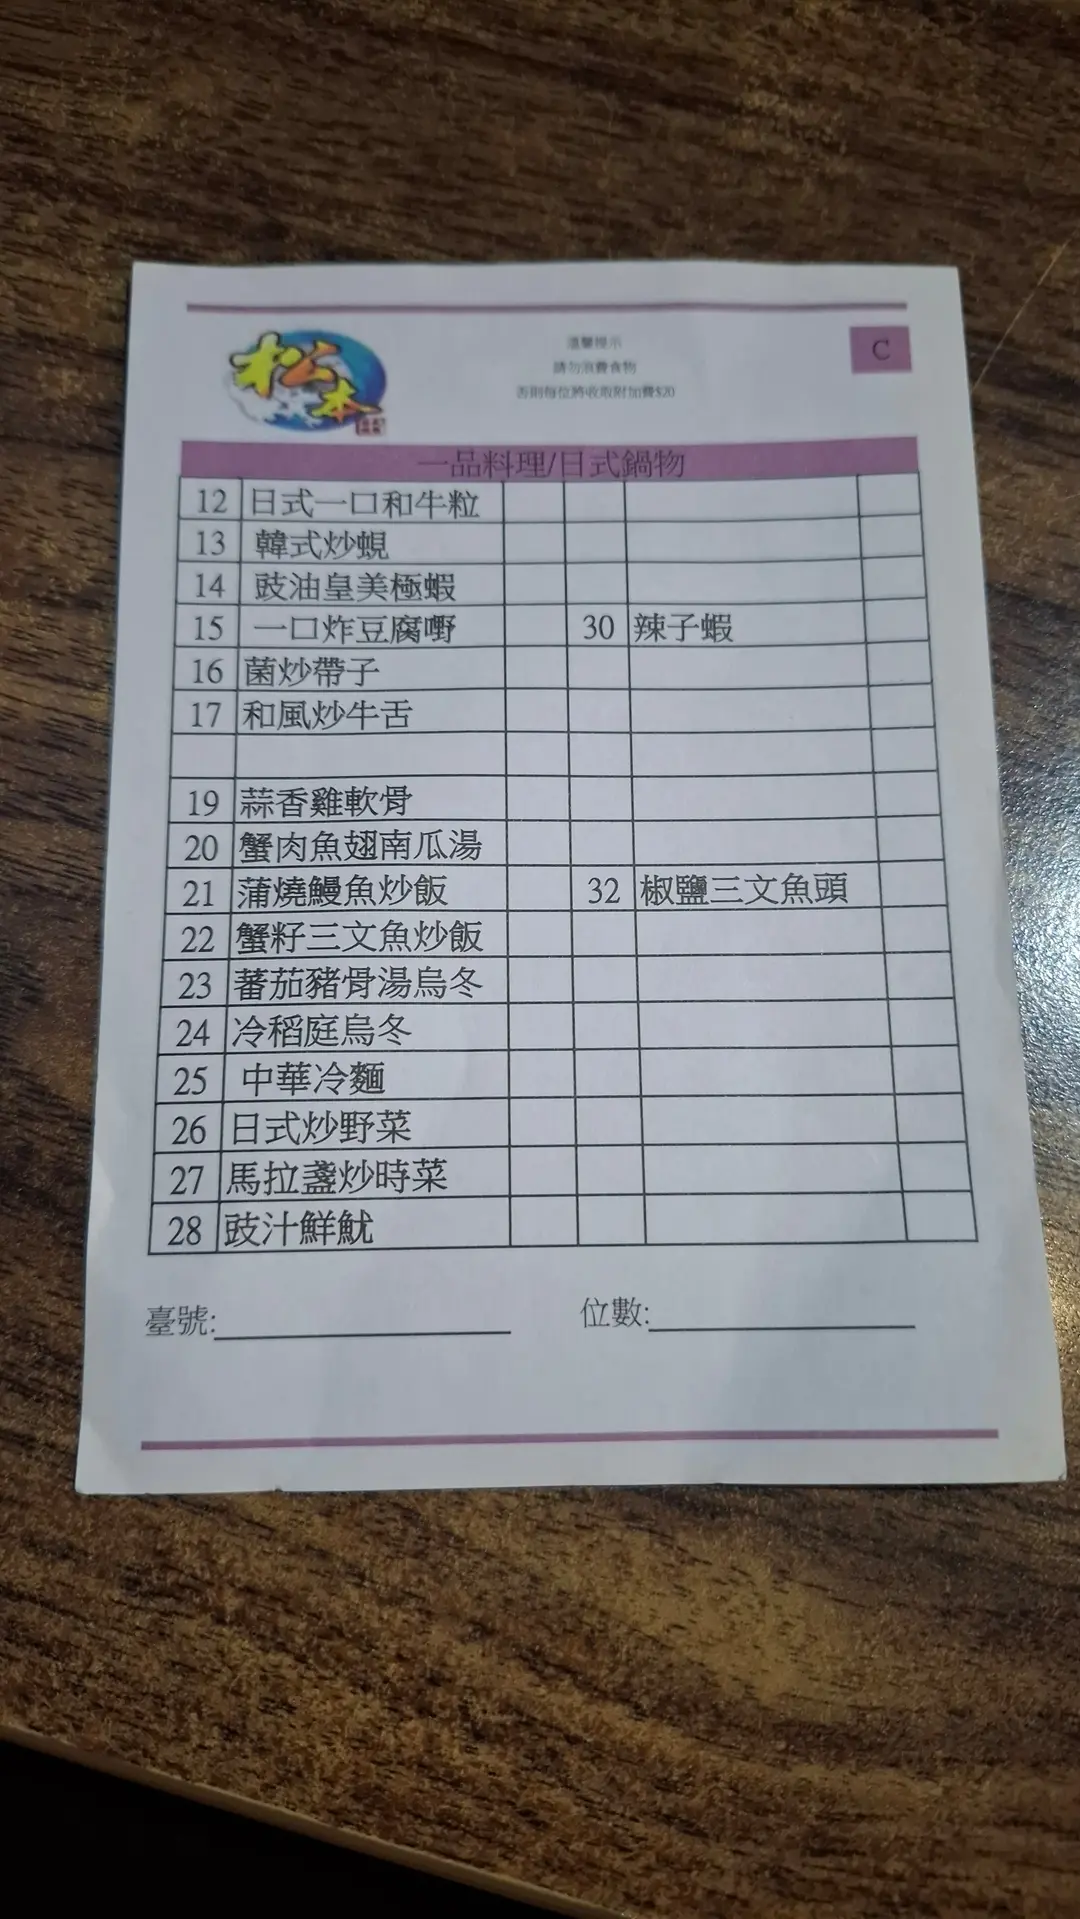 松本
溫馨提示
請勿浪費食物
否則每位將收取附加費$20
C
一品料理/日式鍋物
12 日式一口和牛粒
13 韓式炒蜆
14 豉油皇美極蝦
15 一口炸豆腐嘢 30 辣子蝦
16 菌炒帶子
17 和風炒牛舌
19 蒜香雞軟骨
20 蟹肉魚翅南瓜湯
21 蒲燒鰻魚炒飯 32 椒鹽三文魚頭
22 蟹籽三文魚炒飯
23 蕃茄豬骨湯烏冬
24 冷稻庭烏冬
25 中華冷麵
26 日式炒野菜
27 馬拉盞炒時菜
28 豉汁鮮魷
臺號: 位數: